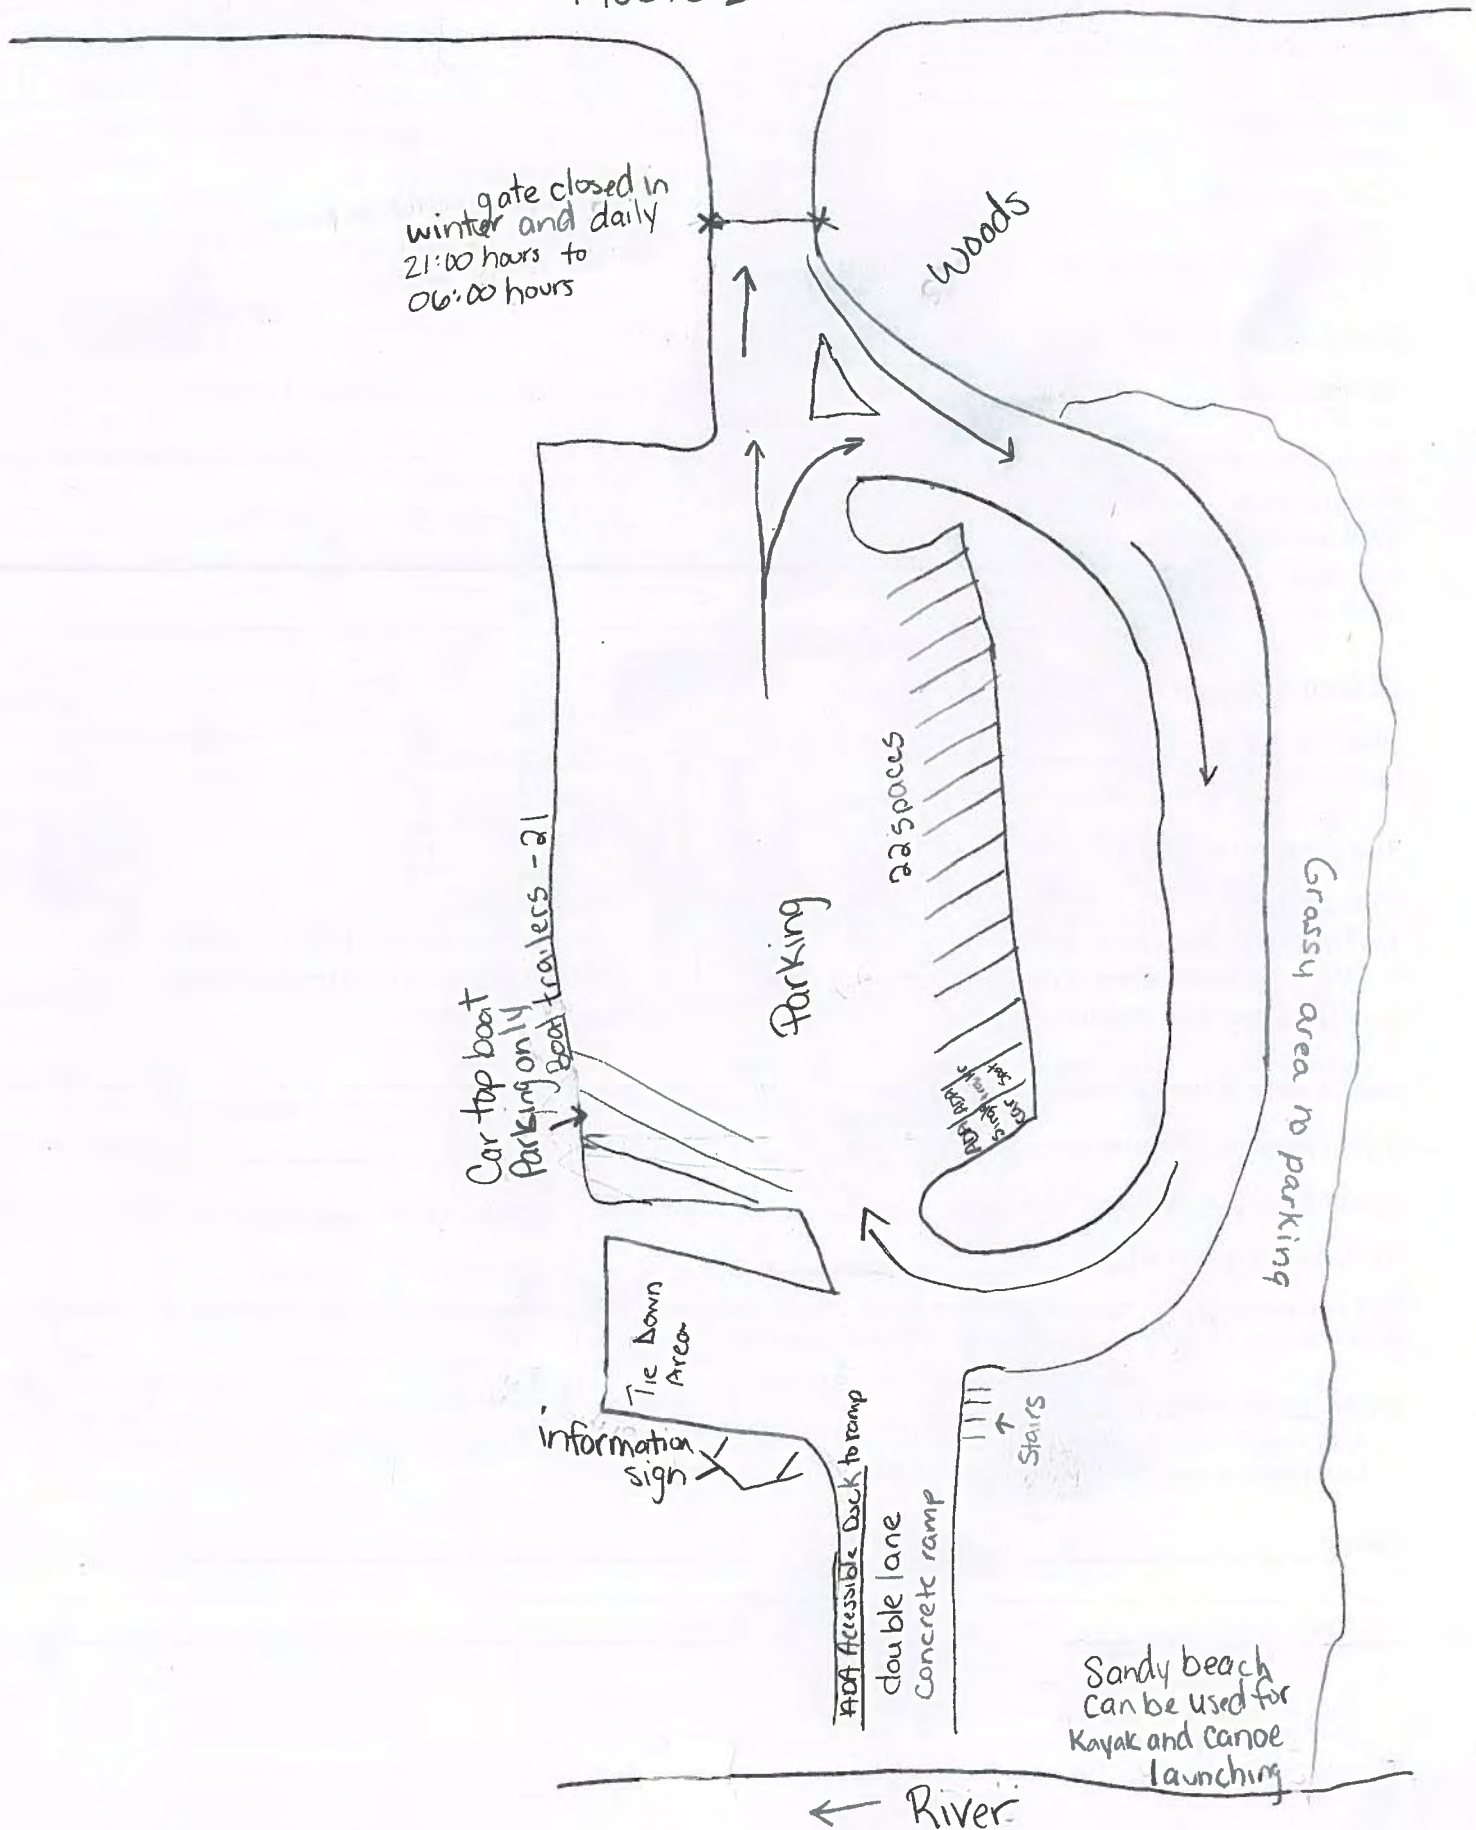 gate closed in
winter and daily
21:00 hours to
06:00 hours
Woods
22 spaces
Parking
Car top boat
Parking only
Boat trailers - 21
ADA
Single
Car
ADA
Grassy area no parking
Tie Down
Area
information
sign
Stairs
ADA Accessible Dock to ramp
double lane
Concrete ramp
Sandy beach
Can be used for
Kayak and Canoe
launching
River